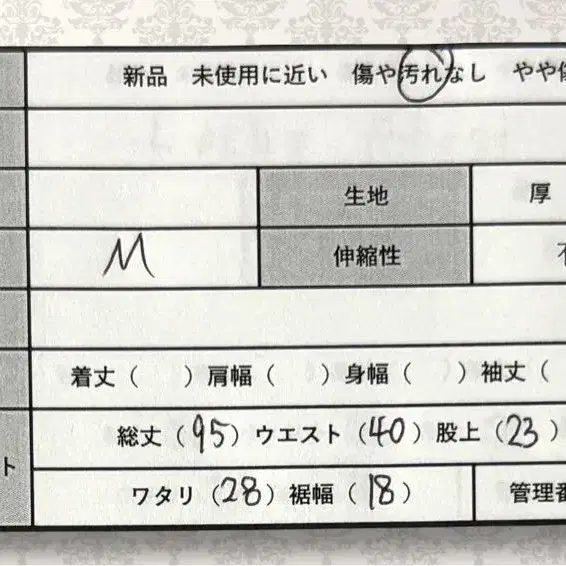 新品 未使用に近い 傷や汚れなし やや傷
生地 厚
M 伸縮性
着丈( )肩幅( )身幅( )袖丈(
総丈(95)ウエスト(40)股上(23)
ト
ワタリ(28)裾幅(18) 管理番